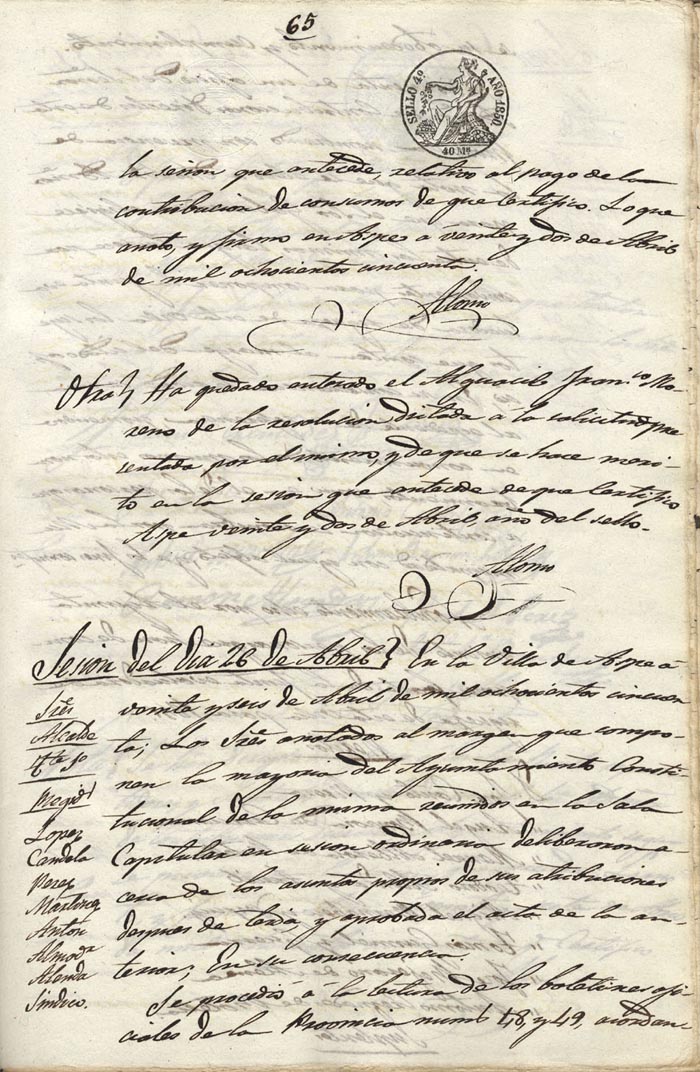 65
SELLO 4º AÑO 1850
40 Ms
la sesion que antecede, relativo al pago de la
contribucion de consumos de que Certifico. Lo que
anoto, y firmo en Aspe a veinte y dos de Abril
de mil ochocientos cincuenta.
Alomo
Otra} Ha quedado enterado el Alguacil Fran.co Mo-
reno de la resolucion dictada á la solicitud pre
sentada por el mismo, y de que se hace meri-
to en la sesion que antecede de que Certifico
Aspe veinte y dos de Abril, año del sello.
Alomo
Sesion del Dia 26 de Abril} En la Villa de Aspe á
veinte y seis de Abril de mil ochocientos cincuen
ta; Los Sres anotados al margen que compo-
nen la mayoria del Ayuntamiento Consti-
tucional de la misma reunidos en la Sala
Capitular en sesion ordinaria deliberaron a-
cerca de los asuntos propios de sus atribuciones
despues de leida, y aprobada el acta de la an-
terior; En su consecuencia.
Se procedió á la lectura de los boletines ofi-
ciales de la Provincia numº 48, y 49, acordan-
Sres
Alcalde
Tte 1º
Regid.s
Lopez
Candela
Perez
Martinez
Anton
Almodr
Alenda
Sindico.